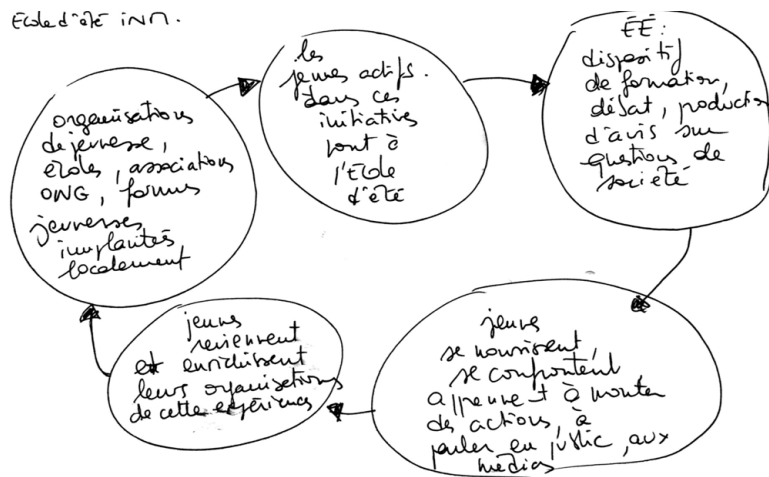 Ecole d'été INM.
organisations
de jeunesse,
écoles, associations
ONG, forums
jeunesses
implantés
localement
les
jeunes actifs
dans ces
initiatives
vont à
l'Ecole
d'été
ÉÉ:
dispositif
de formation,
débat, production
d'avis sur
questions de
société
jeunes
se nourrissent,
se confrontent
apprennent à monter
des actions, à
parler en public, aux
médias
jeunes
reviennent
et enrichissent
leurs organisations
de cette expérience